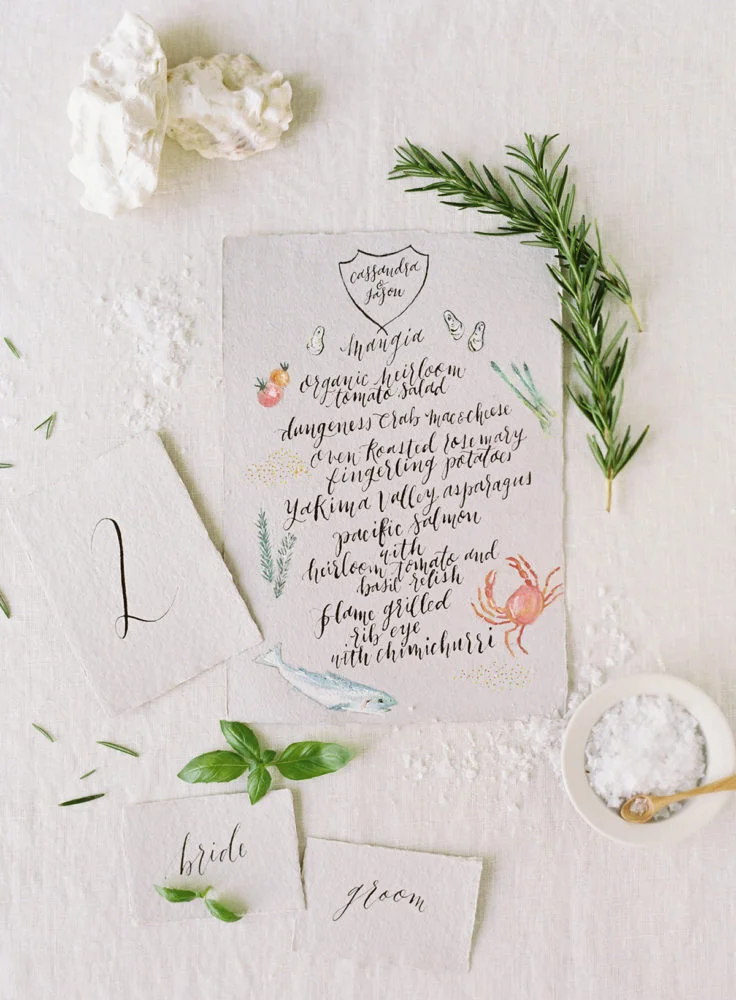 Cassandra
&
Jason
Mangia
organic heirloom
tomato salad
dungeness crab mac&cheese
oven roasted rosemary
fingerling potatoes
yakima valley asparagus
pacific salmon
with
heirloom tomato and
basil relish
flame grilled
rib eye
with chimichurri
2
bride
groom